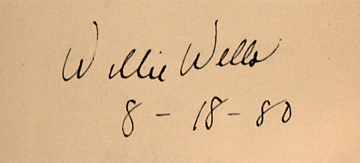 Willie Wells
8-18-80